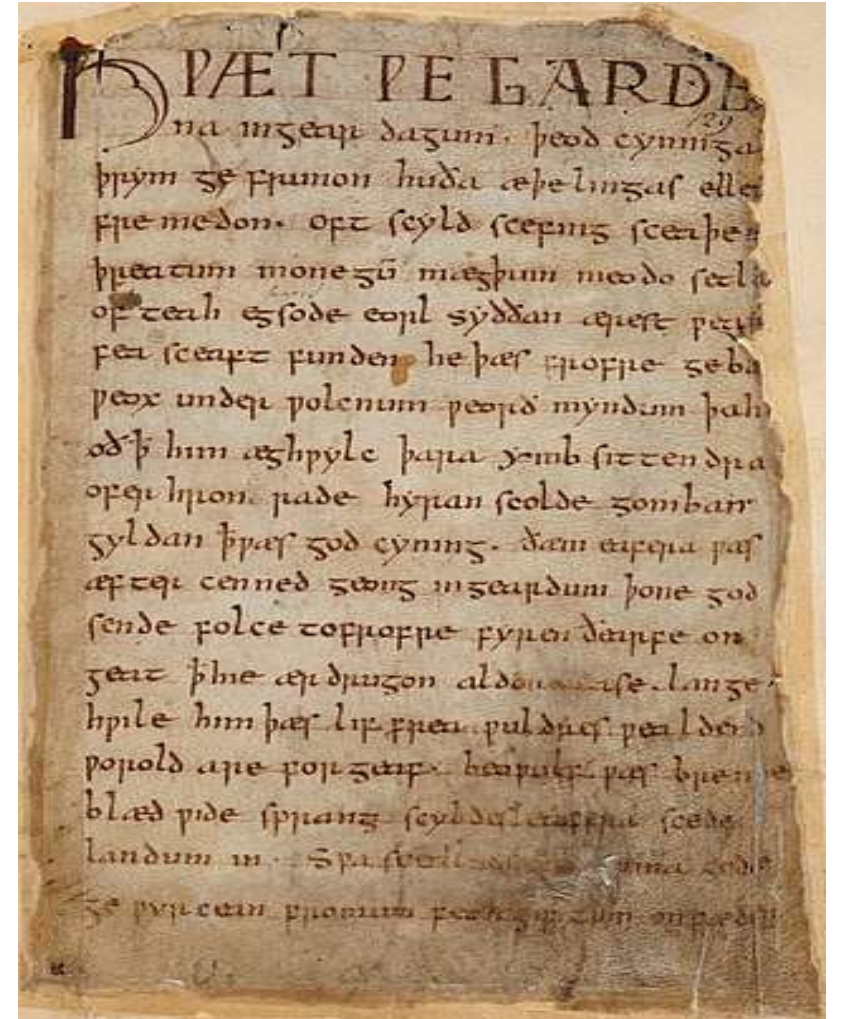 HǷÆT ǷE GARDE
129
na ingear dagum. þeod cyninga
þrym ge frunon huða æþelingas elle
fremedon. oft scyld scefing sceaþe
þreatum monegū mægþum meodo setla
of teah egsode eorl syððan ærest ƿear
fea sceaft funden he þæs frofre geba
ƿeox under ƿolcnum ƿeorð myndum þah
oð ꝥ him æghƿylc þara ymb sittendra
ofer hron rade hyran scolde gomban
gyldan ꝥ ƿæs god cyning. ðæm eafera ƿæs
æfter cenned geong ingeardum þone god
sende folce tofrofre fyren ðearfe on
geat ꝥ hie ær drugon lange
hƿile him þæs lif frea ƿuldres ƿealdend
ƿorold are for geaf. beoƿulf ƿæs breme
blæd ƿide sprang scyldes eafera scede
landum in. Sƿa sceal
ge ƿyrcean fromum feoh giftum